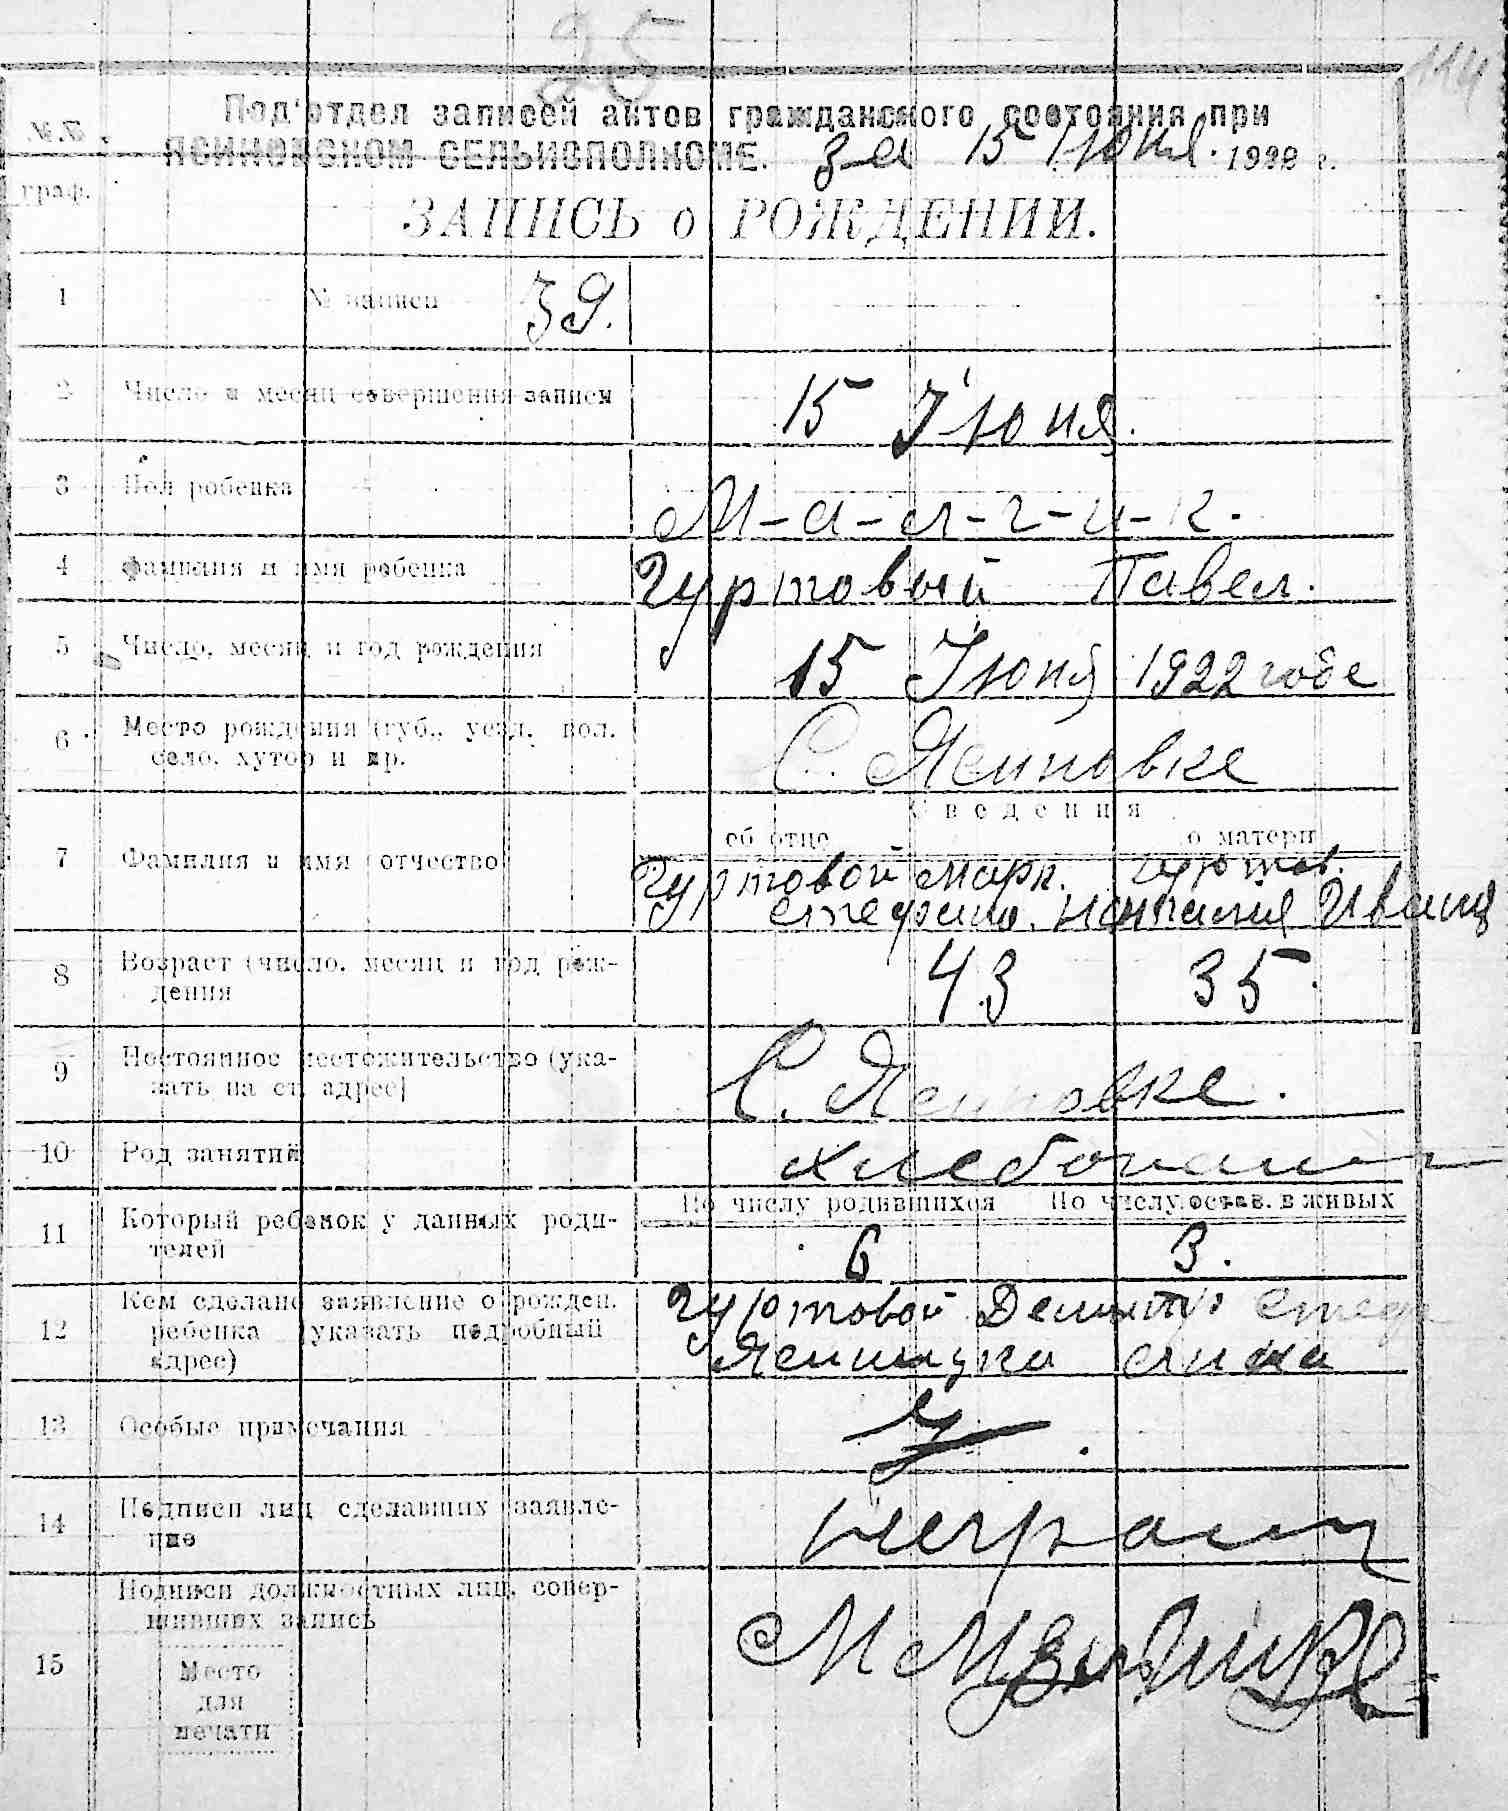 25
114
Под'отдел записей актов гражданского состояния при
№ №
ЯСИНОВСКОМ СЕЛЬИСПОЛКОМЕ. за 15 Июня 1922 г.
граф.
ЗАПИСЬ о РОЖДЕНИИ.
1 № записи 39.
2 Число и месяц совершения записи 15 Июня.
3 Пол ребенка М-а-л-ч-и-к.
4 Фамилия и имя ребенка Гуртовый Павел.
5 Число, месяц и год рождения 15 Июня 1922 года
6 Место рождения (губ., уезд, вол.
село, хутор и др. С. Ясиновке
Сведения
об отце о матери
7 Фамилия и имя (отчество) Гуртовой Марк. Гуртов.
Стефано. Наталия Иванв
8 Возраст (число, месяц и год рож-
дения 43 35.
9 Постоянное местожительство (ука-
зать на ст. адрес) С. Ясиновке.
10 Род занятий хлебопашц
По числу родившихся По числу остав. в живых
11 Который ребенок у данных роди-
телей 6 3.
12 Кем сделано заявление о рожден.
ребенка (указать подробный
адрес)
Гуртовой Демитр Стеф
13 Особые примечания
14 Подписи лиц сделавших заявле-
ние неграмт
Подписи должностных лиц, совер-
шивших запись
15
Место
для
печати